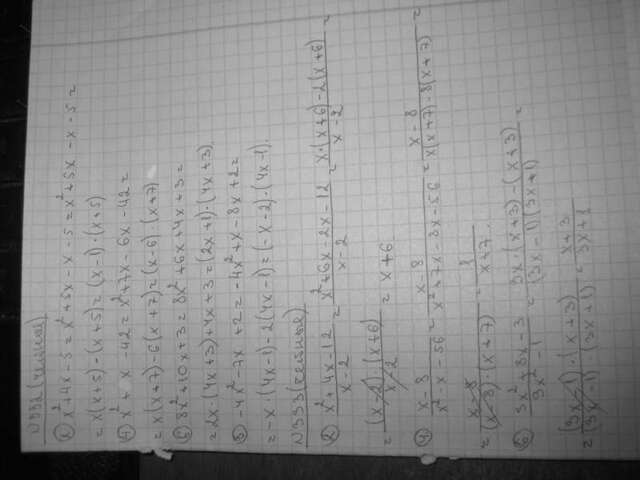 N352(четные)
2) x²+4x-5=x²+5x-x-5=x²+5x-x-5=
=x(x+5)-(x+5)=(x-1)·(x+5)
4) x²+ x -42=x²+7x-6x-42=
=x(x+7)-6(x+7)=(x-6)·(x+7)
6) 8x²+10x+3=8x²+6x+4x+3=
=2x·(4x+3)+4x+3=(2x+1)·(4x+3).
8) -4x²-7x+2=-4x²+x-8x+2=
=-x·(4x-1)-2(4x-1)=(-x-2)·(4x-1).
N353(четные)
2) (x²+4x-12)/(x-2)=(x²+6x-2x-12)/(x-2)=(x·(x+6)-2(x+6))/(x-2)=
=((x-2)·(x+6))/(x-2)=x+6.
4) (x-8)/(x²-x-56)=(x-8)/(x²+7x-8x-56)=(x-8)/(x(x+7)-8(x+7))=
=(x-8)/((x-8)·(x+7))=1/(x+7).
6) (3x²+8x-3)/(9x²-1)=(3x·(x+3)-(x+3))/((3x-1)(3x+1))=
=((3x-1)·(x+3))/((3x-1)·(3x+1))=(x+3)/(3x+1)